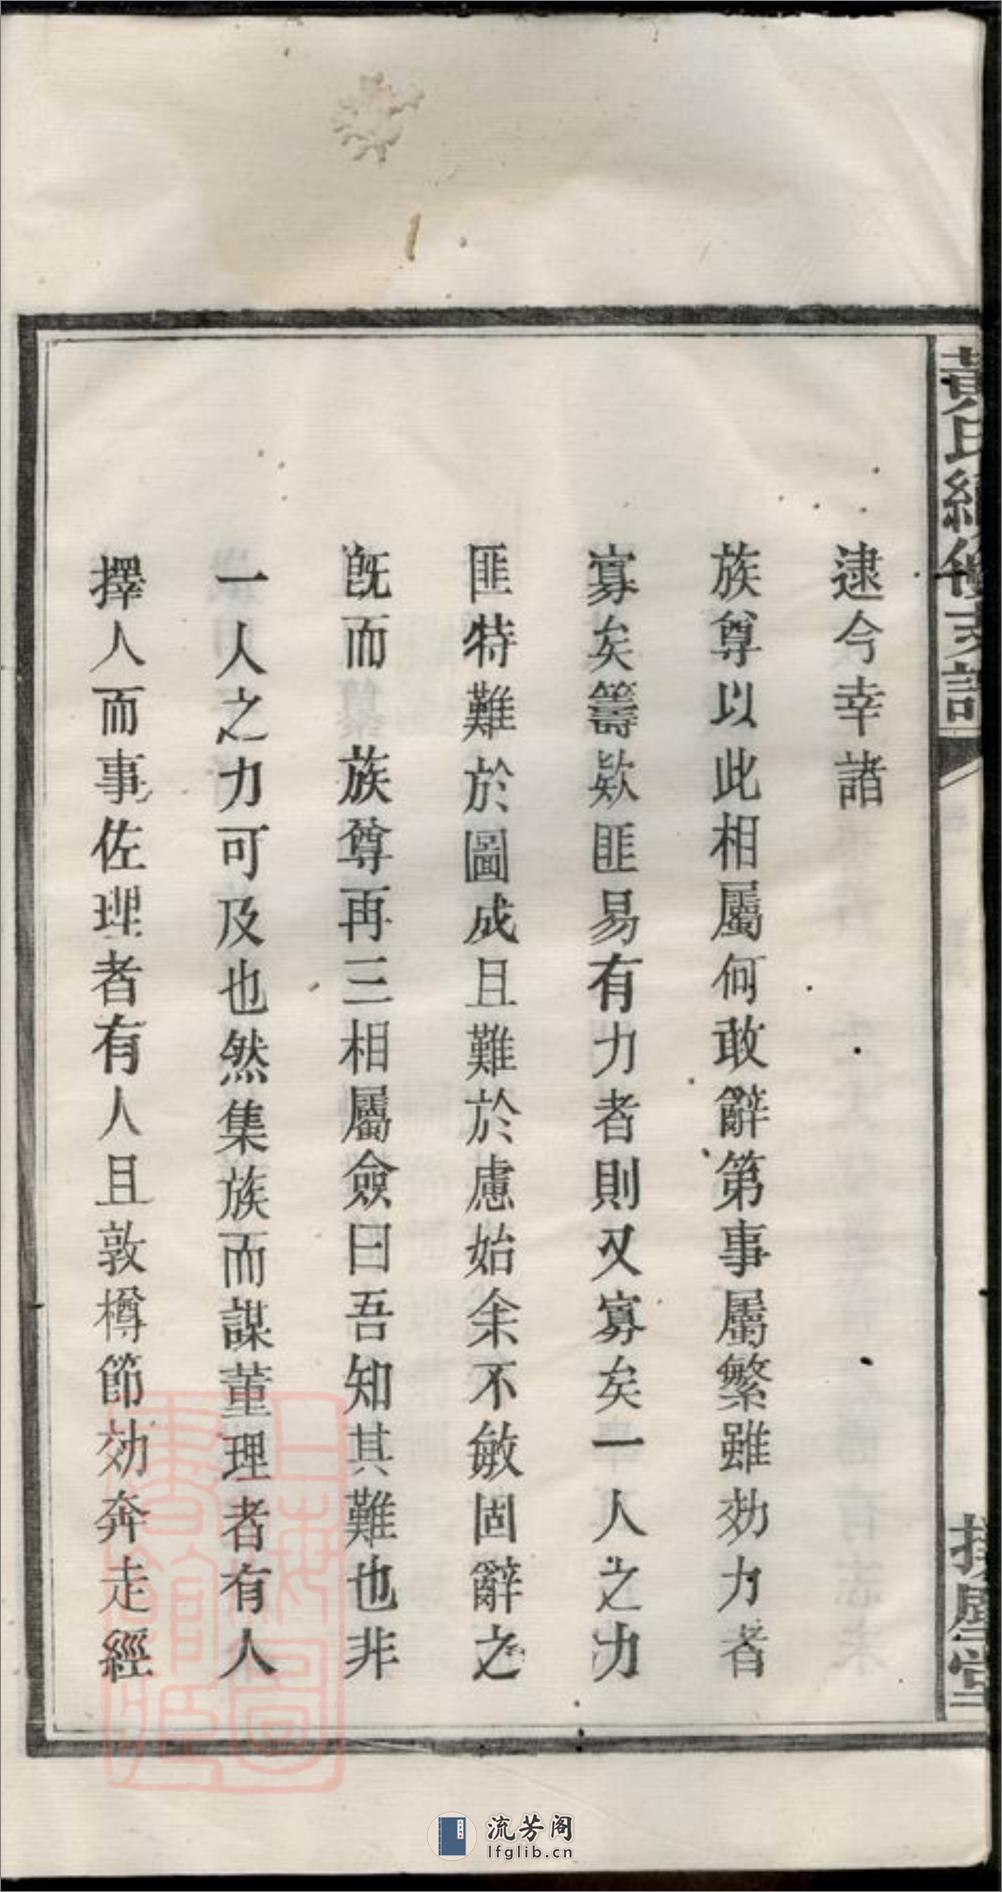 黃氏續修支譜
逮今幸諸
族尊以此相屬何敢辭第事屬繁雖効力者
寡矣籌欵匪易有力者則又寡矣一人之力
匪特難於圖成且難於慮始余不敏固辭之
旣而　族尊再三相屬僉曰吾知其難也非
一人之力可及也然集族而謀董理者有人
擇人而事佐理者有人且敦樽節効奔走經
上海圖書館藏
流芳阁
lfglib.cn